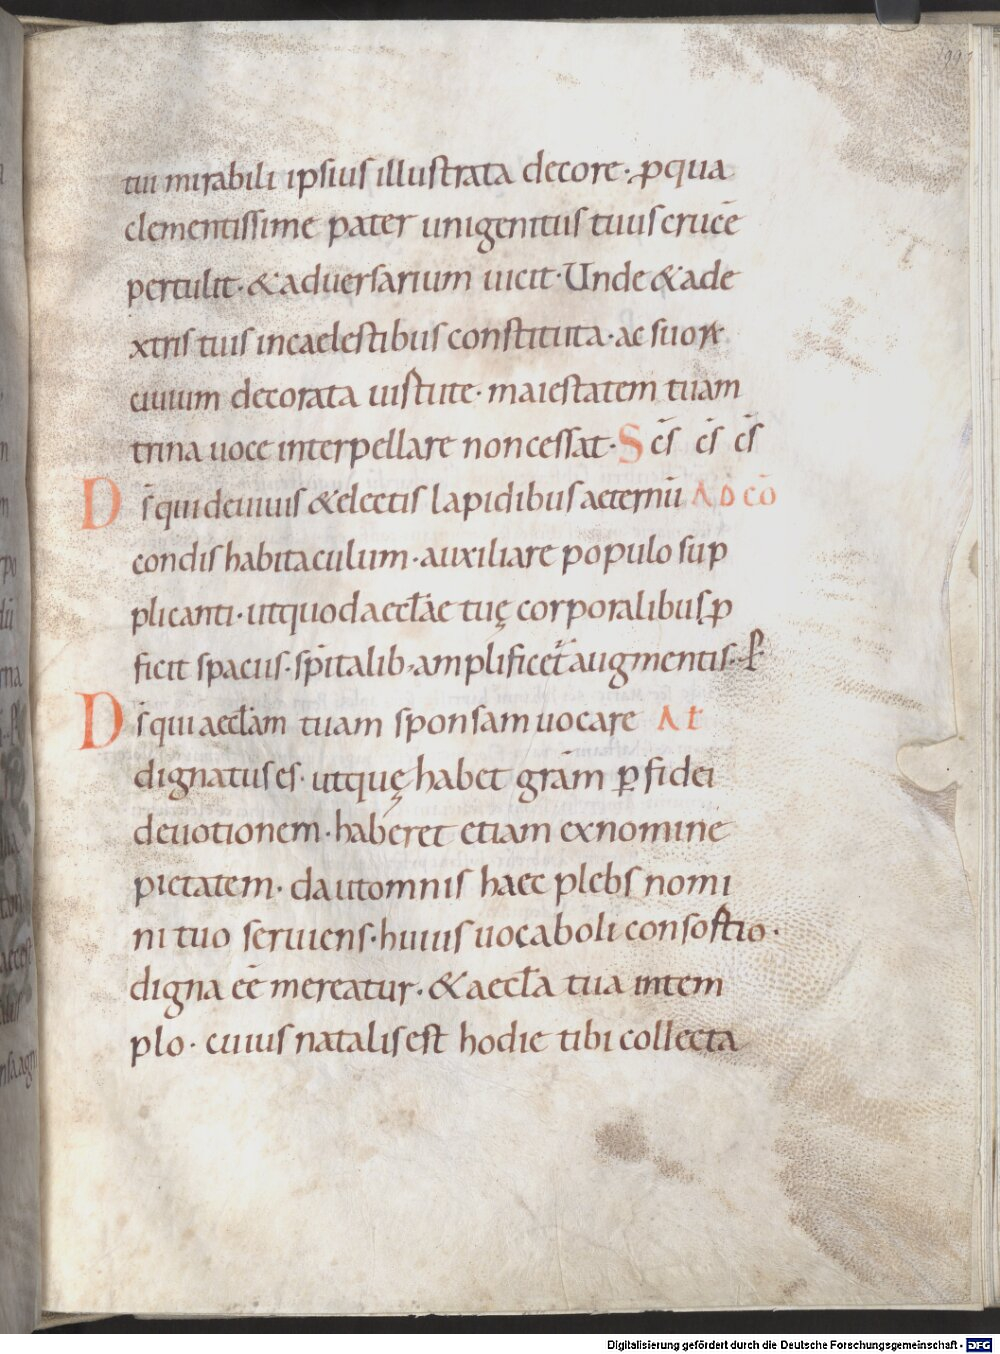 199
tui mirabili ipsius illustrata decore· ꝓ qua
clementissime pater unigenitus tuus crucē
pertulit· & aduersarium uicit· Unde & a de
xtris tuis in caelestibus constituta· ac suoꝝ
ciuium decorata uirtute· maiestatem tuam
trina uoce interpellare non cessat· S c̄s c̄s c̄s
D s̄ qui de uiuis & electis lapidibus aeternū AD CŌ
condis habitaculum· auxiliare populo sup
plicanti· ut quod aeccl̄ae tuę corporalibus ꝓ
ficit spaciis· sp̄italib; amplificet̄ augmentis· P̄
D s̄ qui aeccl̄am tuam sponsam uocare A t
dignatus es· ut quę habet grām ꝑ fidei
deuotionem· haberet etiam ex nomine
pietatem· da ut omnis haec plebs nomi
ni tuo seruiens· huius uocaboli consortio·
digna eē mereatur· & aeccl̄a tua in tem
plo· cuius natalis est hodie tibi collecta
Digitalisierung gefördert durch die Deutsche Forschungsgemeinschaft - DFG